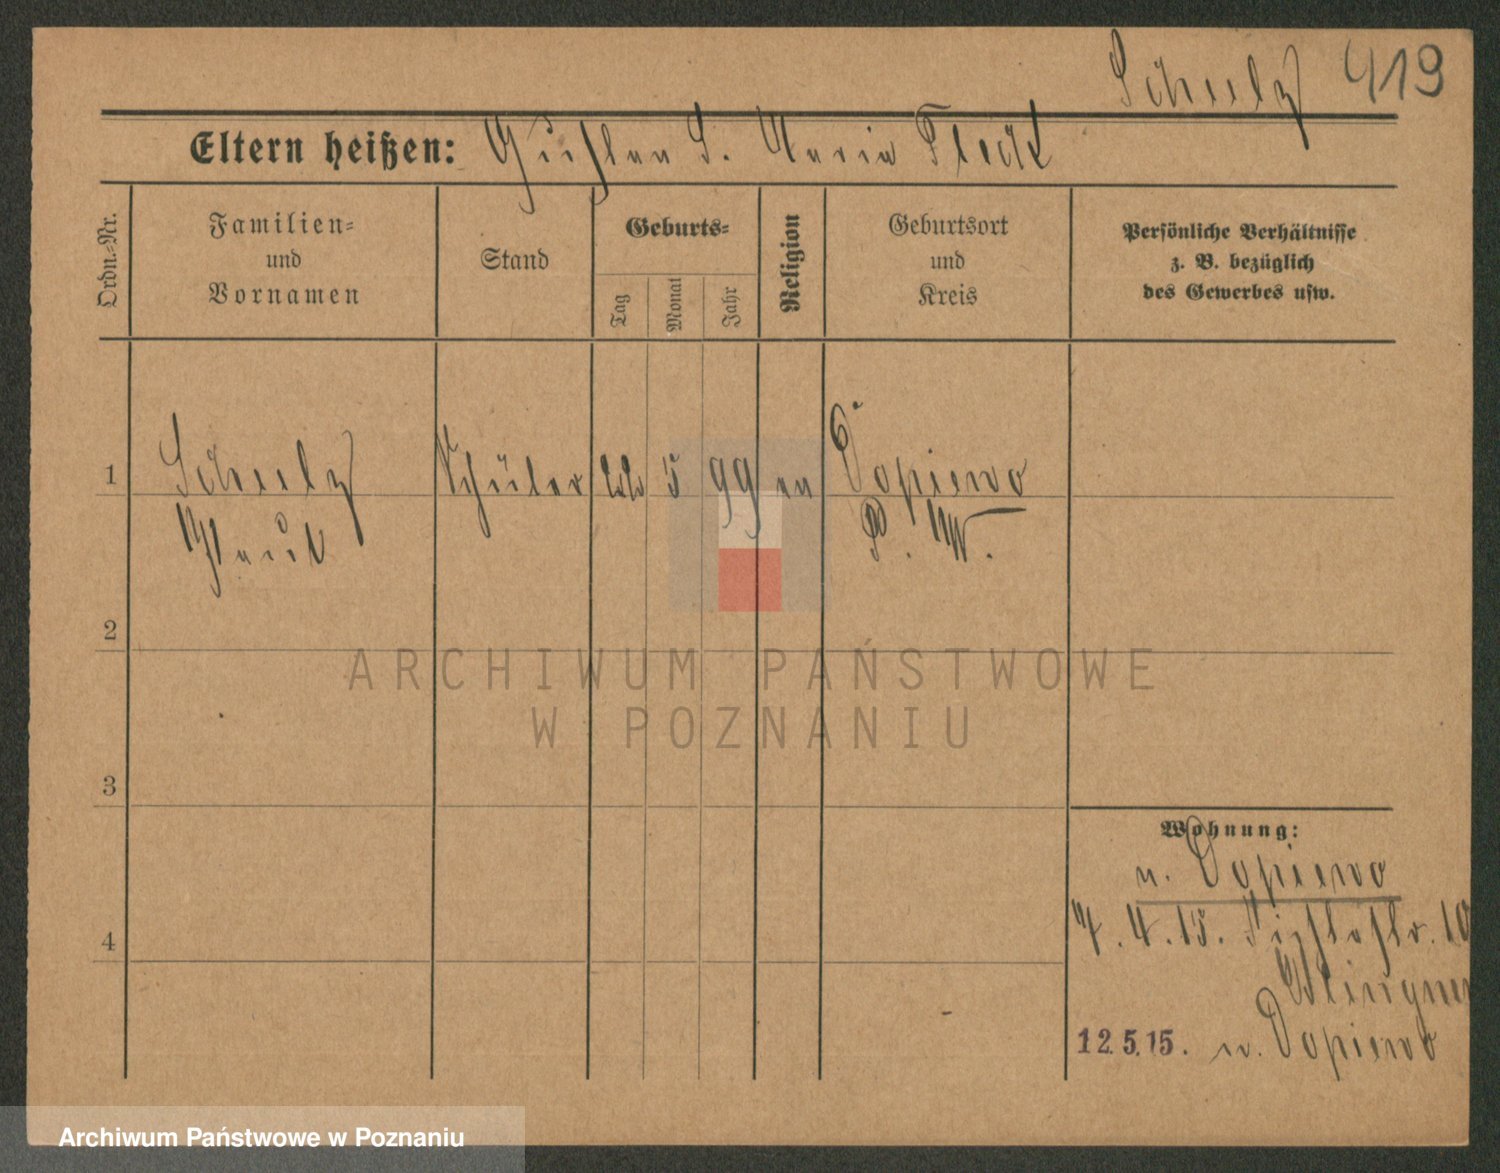 Schulz 419
Eltern heißen: Gustav S. Maria Fleck
Ordn.-Nr.
Familien-
und
Vornamen
Stand
Geburts-
Tag
Monat
Jahr
Religion
Geburtsort
und
Kreis
Persönliche Verhältnisse
z. B. bezüglich
des Gewerbes usw.
1 Schulz Schüler 5 99 ev Dopiewo
Paul P. W.
2
3
4
Wohnung:
n. Dopiewo
7.4.15. 10
12.5.15. n. Dopiewo
ARCHIWUM PAŃSTWOWE
W POZNANIU
Archiwum Państwowe w Poznaniu